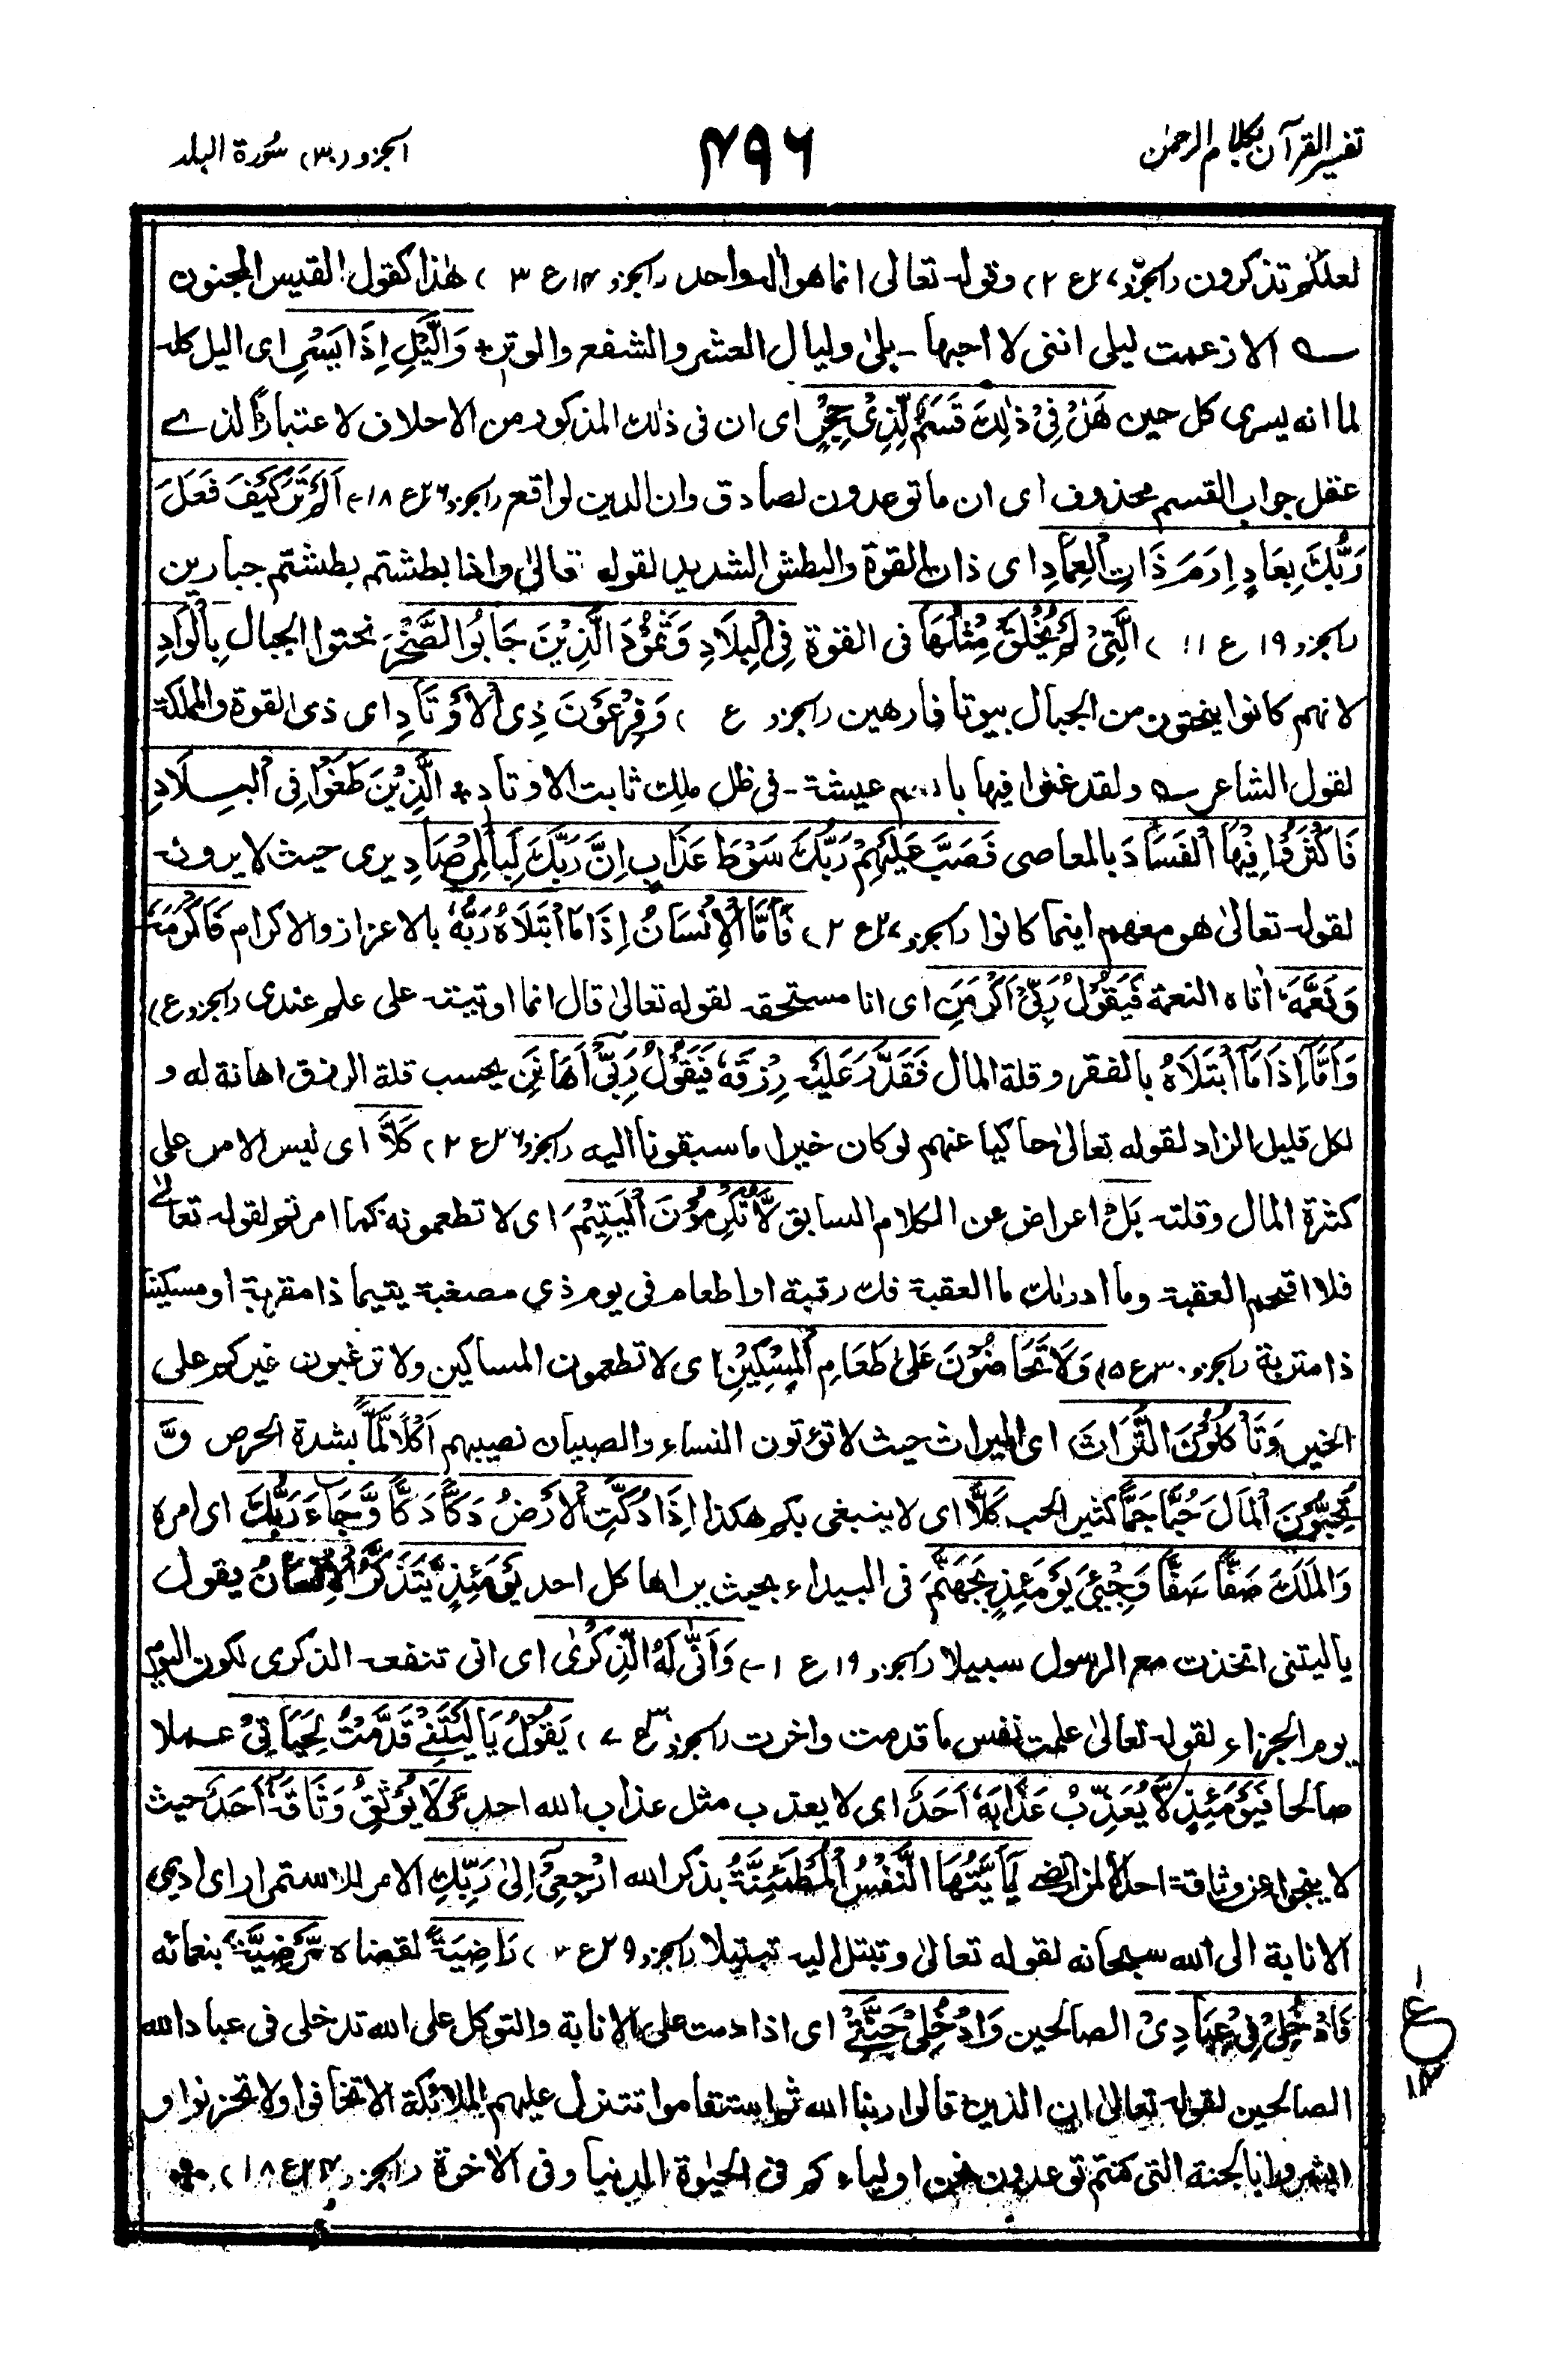 تفسير القرآن بكلام الرحمٰن
٤٩٦
الجزو (٣٠) سُورة البلد
لعلكم تذكرون (الجزو ٢٧ ع ٢) وقوله تعالى انما هو اله واحد (الجزو ١٤ ع ٣) هٰذا كقول القيس المجنون
الا زعمت ليلى اننى لا احبها - بلىٰ وليال العشر والشفع والوتر + وَالَّيْلِ اِذَا يَسْرِ اى اليل كله
لما انه يسرى كل حين هَلْ فِىْ ذٰلِكَ قَسَمٌ لِّذِىْ حِجْرٍ اى ان فى ذلك المذكور من الاحلاف لاعتبارًا لذے
عقل جواب القسم محذوف اى ان ما توعدون لصادق وان الدين لواقع (الجزو ٢٦ ع ١٨) اَلَمْ تَرَ كَيْفَ فَعَلَ
رَبُّكَ بِعَادٍ اِرَمَ ذَاتِ الْعِمَادِ اى ذات القوة والبطش الشديد لقوله تعالىٰ واذا بطشتم بطشتم جبارين
(الجزو ١٩ ع ١١) الَّتِىْ لَمْ يُخْلَقْ مِثْلُهَا فى القوة فِى الْبِلَادِ وَثَمُوْدَ الَّذِيْنَ جَابُوا الصَّخْرَ نحتوا الجبال بِالْوَادِ
لانهم كانوا ينحتون من الجبال بيوتا فارهين (الجزو ع ) وَفِرْعَوْنَ ذِى الْاَوْتَادِ اى ذى القوة والمملكة
لقول الشاعر ولقد غنوا فيها عيشة - فى ظل ملك ثابت الاوتاد + الَّذِيْنَ طَغَوْا فِى الْبِلَادِ
فَاَكْثَرُوْا فِيْهَا الْفَسَادَ بالمعاصى فَصَبَّ عَلَيْهِمْ رَبُّكَ سَوْطَ عَذَابٍ اِنَّ رَبَّكَ لَبِالْمِرْصَادِ يرى حيث لا يرونه
لقوله تعالىٰ هو معهم اينما كانوا (الجزو ٢٨ ع ٢) فَاَمَّا الْاِنْسَانُ اِذَا مَا ابْتَلَاهُ رَبُّهٗ بالاعزاز والاكرام فَاَكْرَمَهٗ
وَنَعَّمَهٗ اٰتاه النعمة فَيَقُوْلُ رَبِّىْ اَكْرَمَنِ اى انا مستحقه لقوله تعالىٰ قال انما اوتيته على علم عندى (الجزو ع)
وَاَمَّا اِذَا مَا ابْتَلَاهُ بالفقر وقلة المال فَقَدَّرَ عَلَيْهِ رِزْقَهٗ فَيَقُوْلُ رَبِّىْ اَهَانَنِ يحسب قلة الرزق اهانة له و
لكل قليل الزاد لقوله تعالىٰ حاكيا عنهم لو كان خيرا ما سبقونا اليه (الجزو ٢٦ ع ٢) كَلَّا اى ليس الامر على
كثرة المال وقلته بَلْ اعراض عن الكلام السابق لَّا تُكْرِمُوْنَ الْيَتِيْمَ اى لا تطعمونه كما امرتم لقوله تعالىٰ
فلا اقتحم العقبة وما ادرٰىك ما العقبة فك رقبة او اطعام فى يوم ذي مصغبة يتيما ذا مقربة او مسكينا
ذا متربة (الجزو ٣٠ ع ١٥) وَلَا تَحَاضُّوْنَ عَلىٰ طَعَامِ الْمِسْكِيْنِ اى لا تطعمون المساكين ولا ترغبون غيركم على
الخير وَتَاْكُلُوْنَ التُّرَاثَ اى الميراث حيث لا تؤتون النساء والصبيان نصيبهم اَكْلًا لَّمًّا بشدة الحرص وَّ
تُحِبُّوْنَ الْمَالَ حُبًّا جَمًّا كثير الحب كَلَّا اى لا ينبغى بكم هكذا اِذَا دُكَّتِ الْاَرْضُ دَكًّا دَكًّا وَّجَاءَ رَبُّكَ اى امره
وَالْمَلَكُ صَفًّا صَفًّا وَجِيْٓءَ يَوْمَئِذٍ بِجَهَنَّمَ فى البيداء بحيث يراها كل احد يَوْمَئِذٍ يَّتَذَكَّرُ الْاِنْسَانُ يقول
ياليتنى اتخذت مع الرسول سبيلا (الجزو ١٩ ع ١) وَاَنّٰى لَهُ الذِّكْرٰى اى انى تنفعه الذكرى لكون اليوم
يوم الجزاء لقوله تعالىٰ علمت نفس ما قدمت واخرت (الجزو ٣٠ ع ٧) يَقُوْلُ يَا لَيْتَنِىْ قَدَّمْتُ لِحَيَاتِىْ عملا
صالحا فَيَوْمَئِذٍ لَّا يُعَذِّبُ عَذَابَهٗ اَحَدٌ اى لا يعذب مثل عذاب الله احد وَّلَا يُوْثِقُ وَثَاقَهٗ اَحَدٌ حيث
لا ينجوا عن وثاقه احد يَا اَيَّتُهَا النَّفْسُ الْمُطْمَئِنَّةُ بذكر الله ارْجِعِىْ اِلىٰ رَبِّكِ الامر للاستمرار اى ادیمی
الانابة الى الله سبحانه لقوله تعالىٰ وتبتل اليه تبتيلا (الجزو ٢٩ ع ) رَاضِيَةً لقضاه مَّرْضِيَّةً بنعمائه
فَادْخُلِىْ فِىْ عِبَادِىْ الصالحين وَادْخُلِىْ جَنَّتِىْ اى اذا دمت على الانابة والتوكل على الله تدخلى فى عباد الله
الصالحين لقوله تعالىٰ ان الذين قالوا ربنا الله ثم استقاموا تتنزل عليهم الملائكة الا تخافوا ولا تحزنوا و
ابشروا بالجنة التى كنتم توعدون نحن اولياءكم فى الحيٰوة الدنيا وفى الاٰخرة (الجزو ٢٤ ع ١٨)
ع